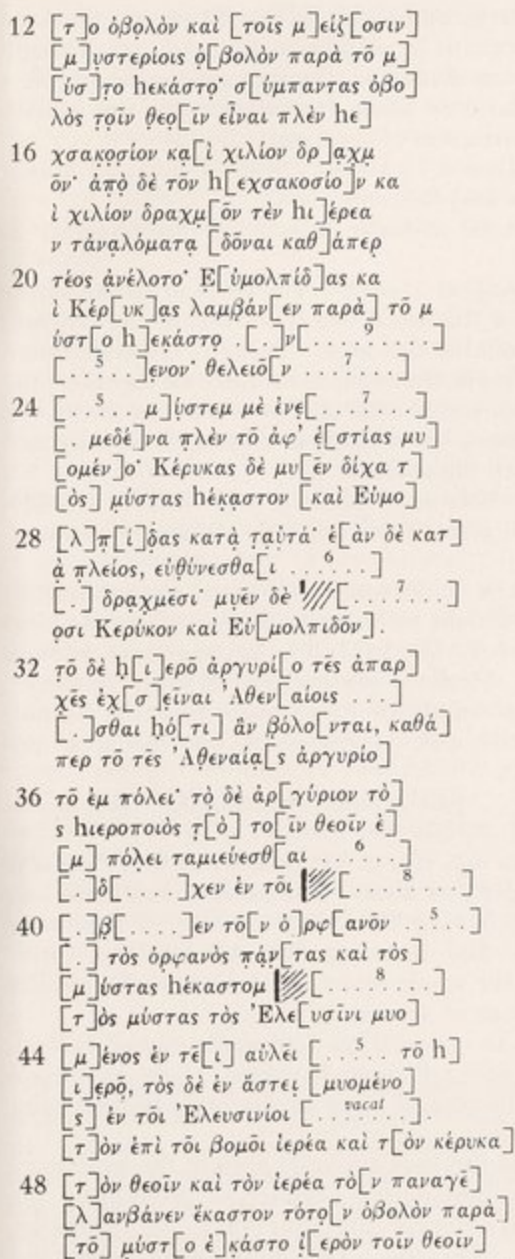 12 [τ]ο ὀβολὸν καὶ [τοῖς μ]είζ[οσιν]
[μ]υστερίοις ὀ̣[βολὸν παρὰ τõ μ]
[ύσ]το hεκάστο̣· σ[ύμπαντας ὀβο]
λὸς τ̣οῖν θεο̣[ῖν εἶναι πλὲν hε]
16 χσακο̣σίον κα̣[ὶ χιλίον δρ]α̣χμ
õν· ἀπὸ̣ δὲ τõν h[εχσακοσίο]ν κα
ὶ χιλίον δραχμ[õν τὲν hι]έρεα
ν τἀναλόματα̣ [δõναι καθ]άπερ
20 τέος ἀνέλοτο· Ε̣[ὐμολπίδ]ας κα
ὶ Κέρ[υκ]ας λαμβάν[εν παρὰ] τõ μ
ύστ[ο h]εκάστο .[.]ν[....9.....]
[..5...]ενον· θελειõ[ν ...7....]
24 [..5.. μ]ύστεμ μὲ ἐνε̣[...7....]
[. μεδέ]να πλὲν τõ ἀφ’ ἑ[στίας μυ]
[ομέν]ο· Κέρυκας δὲ μυ[ε͂ν δίχα τ]
[ὸς] μύστας hέκα̣στον [καὶ Εὐμο]
28 [λ]π[ί]δ̣ας κατὰ̣ τα̣ὐτά· ἐ[ὰν δὲ κατ]
ὰ πλείος, εὐθύνεσθα[ι ...6...]
[.] δρα̣χμε͂σι· μυε͂ν δὲ [...7....]
ο̣σι Κερύκον καὶ Εὐ[μολπιδõν].
32 τõ δὲ ḥ[ι]ερõ ἀργυρί[ο τε͂ς ἀπαρ]
χε͂ς ἐχ[σ]εῖναι Ἀθεν[αίοις ...]
[.]σθαι ḥό[τι] ἂν βόλο[νται, καθά]
περ τõ τε͂ς Ἀθεναία̣[ς ἀργυρίο]
36 τõ ἐμ πόλει· τὸ̣ δὲ ἀρ[γύριον τὸ]
ς hιεροποιὸς τ̣[ὸ] το[ῖν θεοῖν ἐ]
[μ] πόλει ταμιεύεσθ[αι ...6...]
[.]δ[....]χεν ἐν τõι [....8....]
40 [.]β[....]εν τõ[ν ὀ]ρφ[ανõν ..5..]
[.] τὸς ὀρφανὸς πά̣ν̣[τας καὶ τὸς]
[μ]ύστας hέκαστομ [....8....]
[τ]ὸς μύστας τὸς Ἐλε[υσῖνι μυο]
44 [μ]ένος ἐν τε͂[ι] αὐλε͂ι [..5.. τõ h]
[ι]ερ̣õ, τὸς δὲ ἐν ἄστει [μυομένο]
[ς] ἐν τõι Ἐλευσινίοι [...vacat...].
[τ]ὸν ἐπὶ τõι βομõι ἱερέα καὶ τ[ὸν κέρυκα]
48 [τ]ὸν θεοῖν καὶ τὸν ἱερέα τὸ[ν παναγε͂]
[λ]ανβάνεν ἕκαστον τότο̣[ν ὀβολὸν παρὰ]
[τõ] μύστ[ο ἑ]κάστο ἱ̣[ερὸν τοῖν θεοῖν]